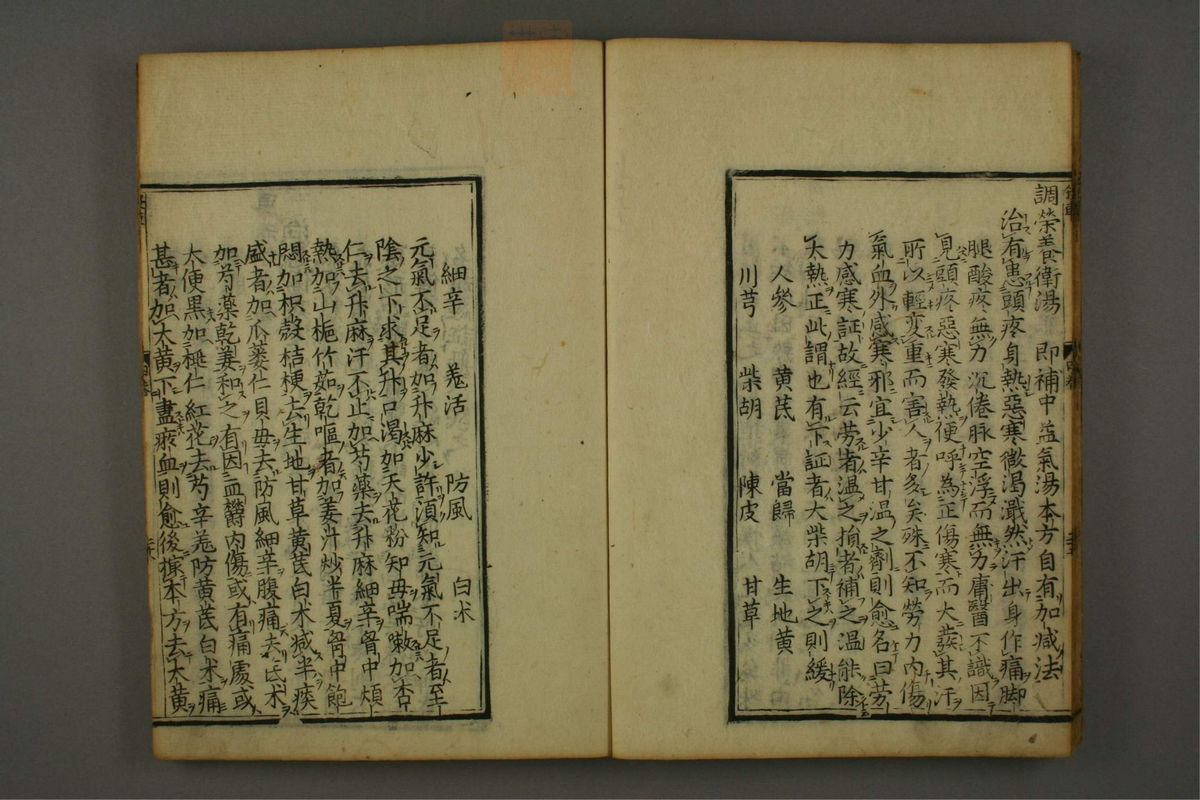 調榮養衛湯 即補中益氣湯本方自有加减法
治有患頭疼身熱惡寒微渴濈然汗出身作痛脚
腿酸疼無力沉倦脉空浮而無力庸醫不識因
見頭疼惡寒發熱便呼為正傷寒而大發其汗
所以輕変重而害人者多矣殊不知勞力内傷
氣血外感寒邪宜少辛甘温之劑則愈名曰劳
力感寒証故經云劳者温之損者補之温能除
大熱正此謂也有下証者大柴胡下之則緩
人參 黄芪 當歸 生地黄
川芎 柴胡 陳皮 甘草
細辛 羗活 防風 白术
元氣不足者加升麻少許湏知元氣不足者至
陰之下求其升口渇加天花粉知毋喘嗽加杏
仁去升麻汗不止加芍藥去升麻細辛胷中煩
熱加山梔竹茹乾嘔者加姜汁炒半夏胷中飽
悶加枳殼桔梗去生地甘草黄芪白术减半痰
盛者加瓜蔞仁貝毋去防風細辛腹痛去芪术
加芍藥乾姜和之有因血欝内傷或有痛處或
大便黒加桃仁紅花去芍辛羗防黄芪白术痛
甚者加大黄下盡瘀血則愈後據本方去大黄